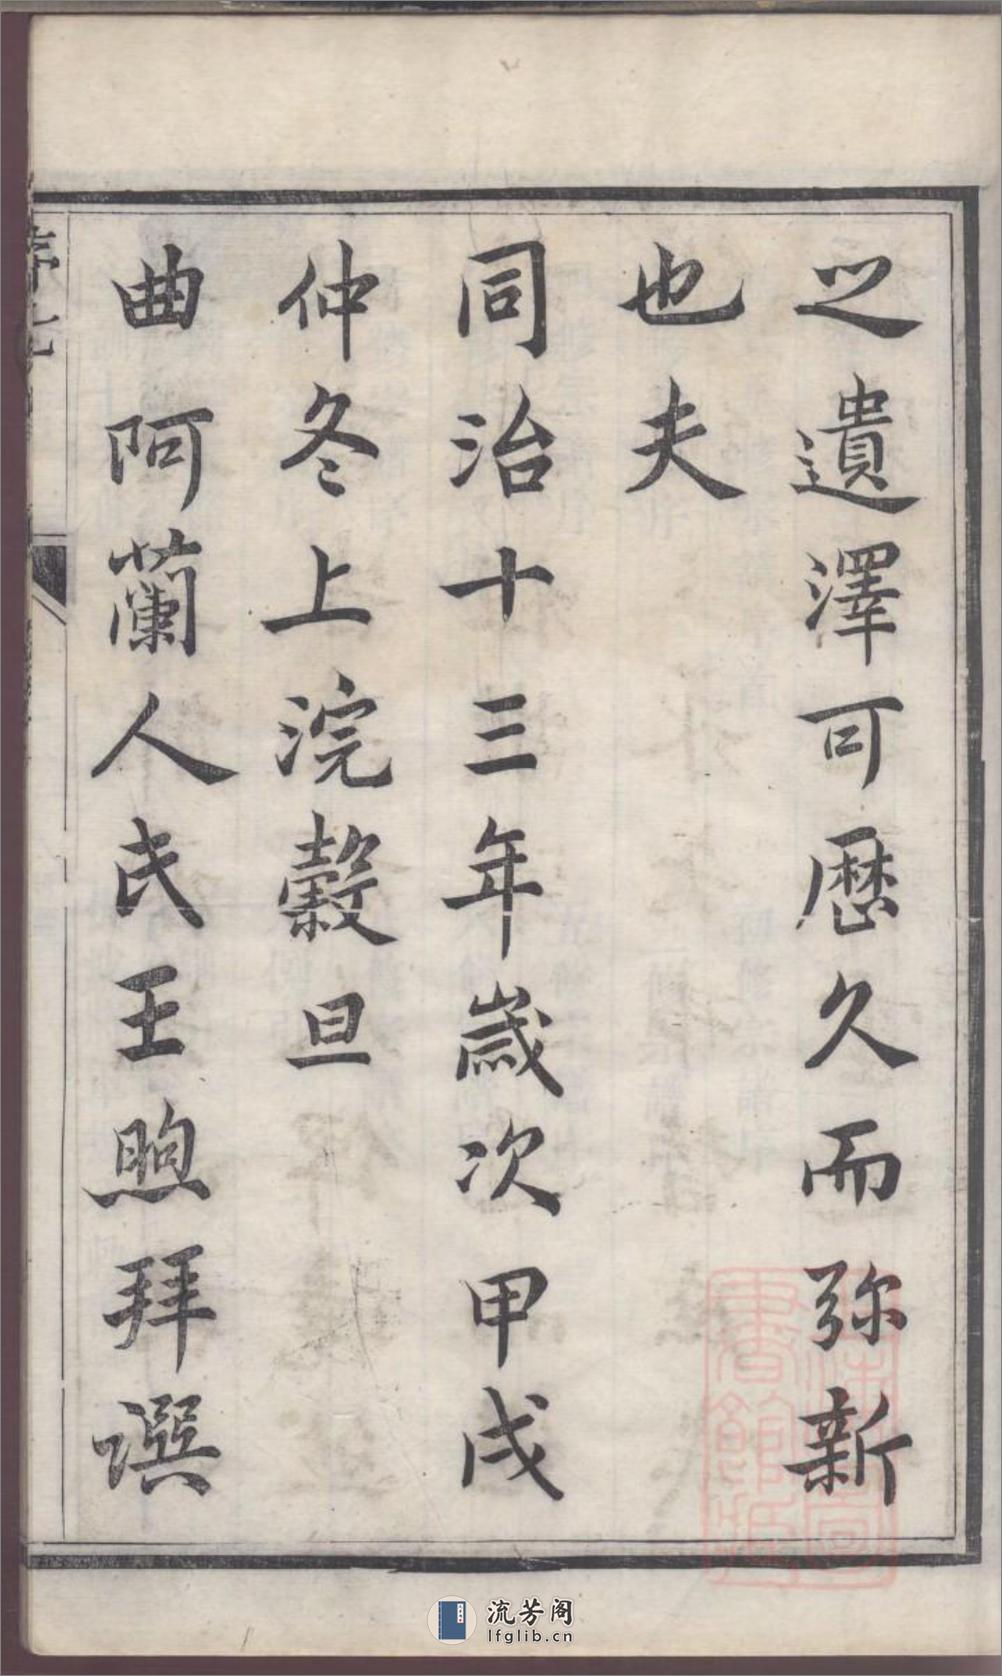 之遺澤可歷久而弥新
也夫
同治十三年歲次甲戌
仲冬上浣穀旦
曲阿蘭人氏王煦拜譔
序
流芳阁
lfglib.cn